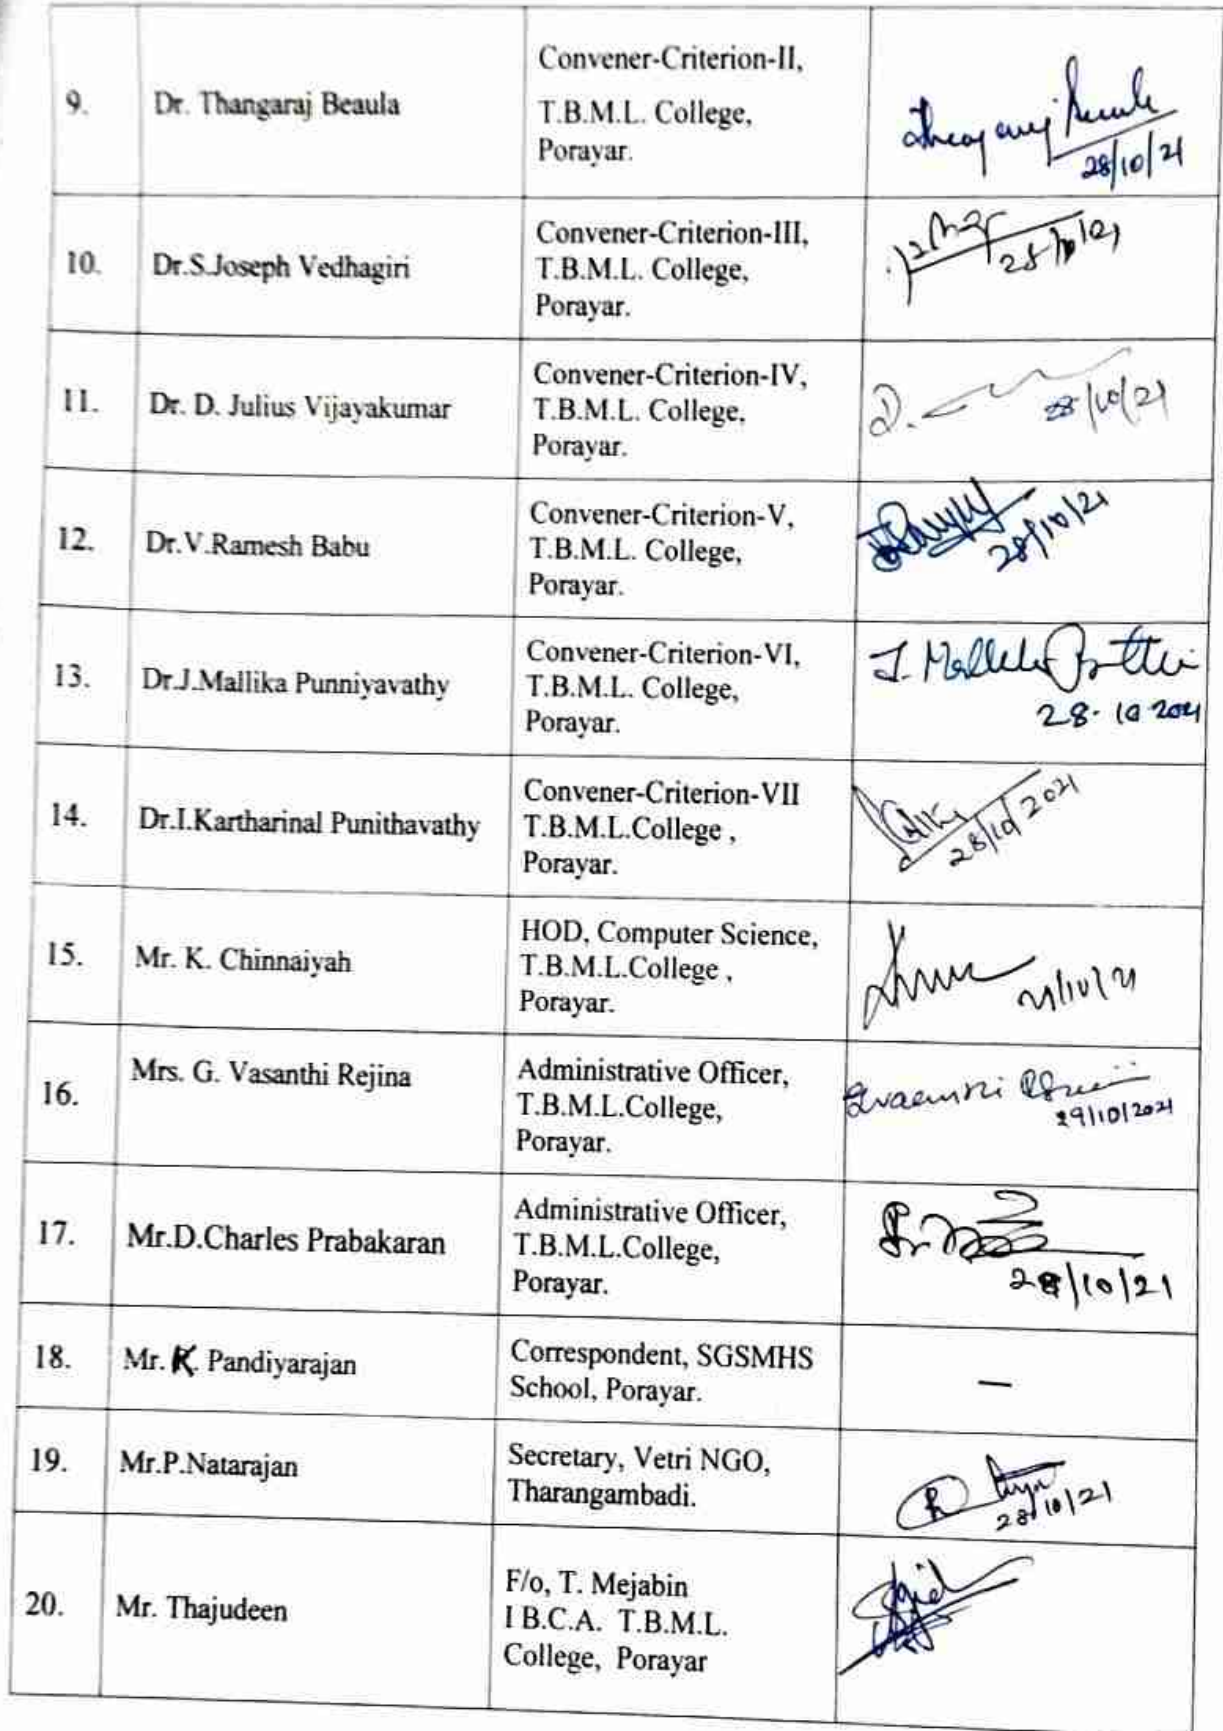 9.
Dr. Thangaraj Beaula
Convener-Criterion-II,
T.B.M.L. College,
Porayar.
28/10/21
10.
Dr.S.Joseph Vedhagiri
Convener-Criterion-III,
T.B.M.L. College,
Porayar.
11.
Dr. D. Julius Vijayakumar
Convener-Criterion-IV,
T.B.M.L. College,
Porayar.
D.
28/10/21
12.
Dr.V.Ramesh Babu
Convener-Criterion-V,
T.B.M.L. College,
Porayar.
28/10/21
13.
Dr.J.Mallika Punniyavathy
Convener-Criterion-VI,
T.B.M.L. College,
Porayar.
28.10.2021
14.
Dr.I.Kartharinal Punithavathy
Convener-Criterion-VII
T.B.M.L.College ,
Porayar.
28/10/2021
15.
Mr. K. Chinnaiyah
HOD, Computer Science,
T.B.M.L.College ,
Porayar.
16.
Mrs. G. Vasanthi Rejina
Administrative Officer,
T.B.M.L.College,
Porayar.
29/10/2021
17.
Mr.D.Charles Prabakaran
Administrative Officer,
T.B.M.L.College,
Porayar.
28/10/21
18.
Mr. K. Pandiyarajan
Correspondent, SGSMHS
School, Porayar.
–
19.
Mr.P.Natarajan
Secretary, Vetri NGO,
Tharangambadi.
28/10/21
20.
Mr. Thajudeen
F/o, T. Mejabin
I B.C.A. T.B.M.L.
College, Porayar